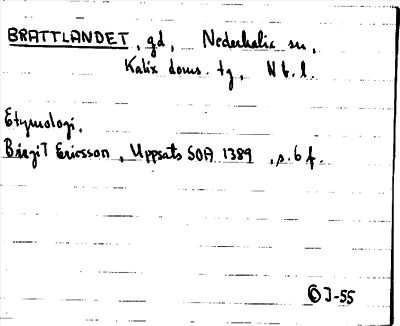 BRATTLANDET, gd, Nederkalix sn,
Kalix doms. tg, Nb. l.
Etymologi.
Birgit Ericsson, Uppsats SOA 1389, s. 6 f.
J-55